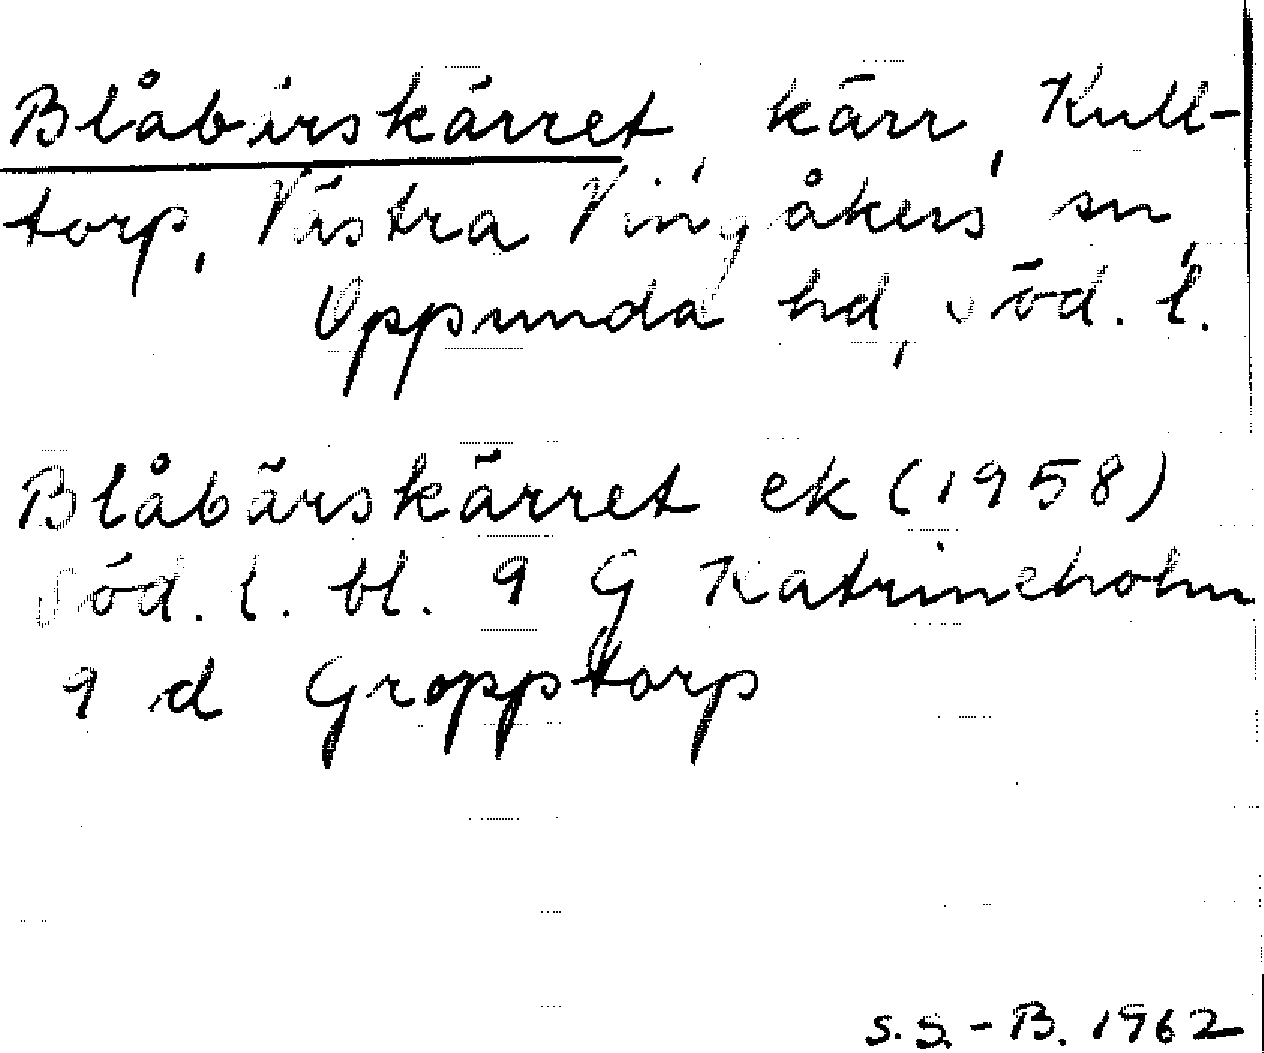 Blåbärskärret, kärr, Kull-
torp, Västra Vingåkers sn,
Oppunda hd, Söd. l.
Blåbärskärret ek (1958)
Söd. l. bl. 9 G Katrineholm
9 d Gropptorp
S.S.-B. 1962